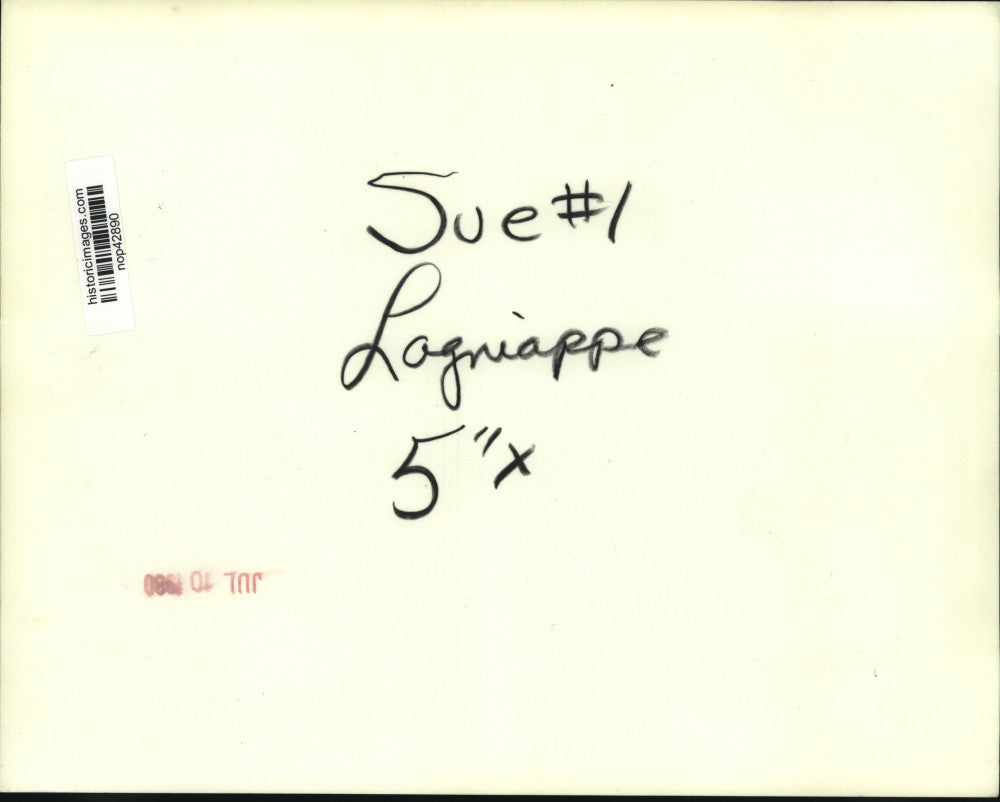 historicimages.com
nop42890
Sue #1
Lagniappe
5" x
JUL 10 1980